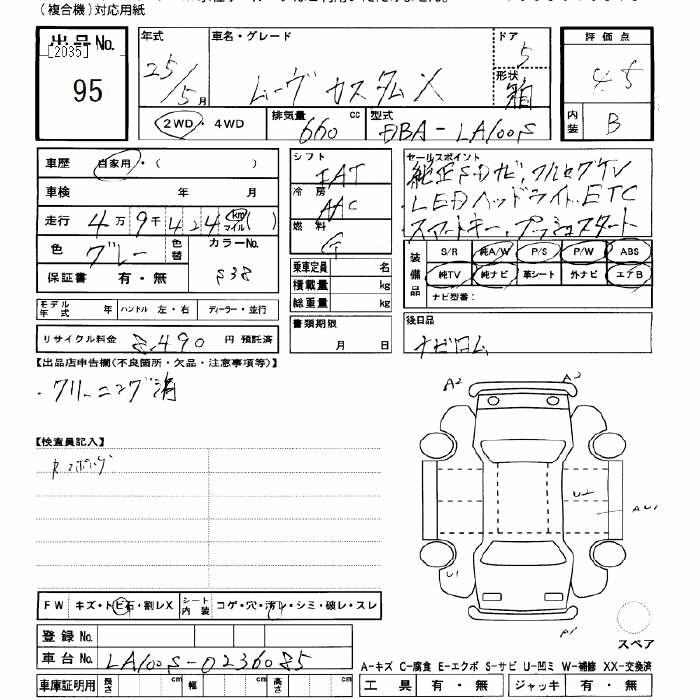 (複合機)対応用紙
出品No. [2035] 95
年式 25/5月
車名・グレード ムーヴ カスタムX
ドア 5
形状 箱
評価点 4.5
内装 B
2WD・4WD
排気量 660 cc
型式 DBA-LA100S
車歴 自家用・( )
車検 年 月
走行 4万9千424 km マイル ( )
色 グレー 色替 カラーNo. S38
保証書 有・無
シフト IAT
冷房 AAC
燃料 G
乗車定員 名
積載量 kg
総重量 kg
セールスポイント
純正SDナビ,フルセグTV
LEDヘッドライト.ETC
スマートキー,プッシュスタート
装備品 S/R 純A/W P/S P/W ABS
純TV 純ナビ 革シート 外ナビ エアB
ナビ型番:
モデル年式 年 ハンドル 左・右 ディーラー・並行
リサイクル料金 8,490 円 預託済
書類期限 月 日
後日品 ナビロム
【出品店申告欄(不良箇所・欠品・注意事項等)】
・クリーニング済
【検査員記入】
A2 A2
U2
AU1
U1
A1
FW キズ・トビ石・割レX シート内装 コゲ・穴・汚レ・シミ・破レ・スレ
スペア
登録No.
車台No. LA100S-0236085
A-キズ C-腐食 E-エクボ S-サビ U-凹ミ W-補修 XX-交換済
車庫証明用 長さ cm 幅 cm 高さ cm
工具 有・無 ジャッキ 有・無